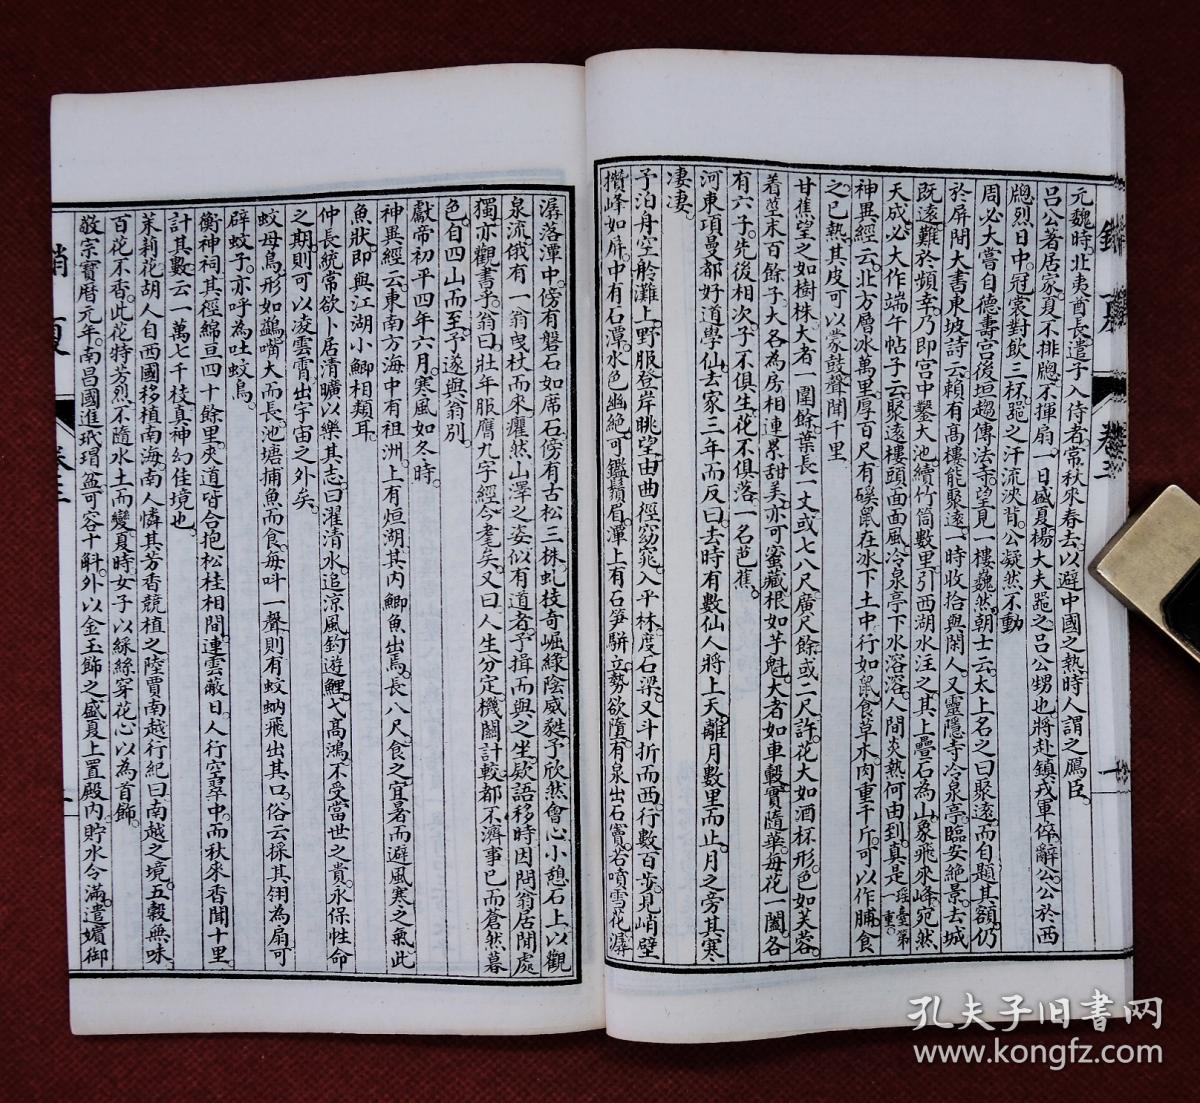 銷夏
卷三
一
元魏時北夷酋長遣子入侍者常秋來春去以避中國之熱時人謂之鴈臣
呂公著居家夏不排牕不揮扇一日盛夏楊大夫器之呂公甥也將赴鎮戎軍倅辭公公於西
牕烈日中冠裳對飲三杯器之汗流浹背公凝然不動
周必大嘗自德壽宮後垣趨傳法寺望見一樓巍然朝士云太上名之曰聚遠而自題其額仍
於屏間大書東坡詩云賴有高樓能聚遠一時收拾與閑人又靈隱寺冷泉亭臨安絕景去城
既遠難於頻幸乃即宮中鑿大池續竹筒數里引西湖水注之其上疊石為山象飛來峰宛然
天成必大作端午帖子云聚遠樓頭面面風冷泉亭下水溶溶人間炎熱何由到真是瑤臺第一重
神異經云北方層冰萬里厚百尺有磎鼠在冰下土中行如鼠食草木肉重千斤可以作脯食
之已熱其皮可以蒙鼓聲聞千里
甘蕉望之如樹株大者一圍餘葉長一丈或七八尺廣尺餘或二尺許花大如酒杯形色如芙蓉
着莖末百餘子大各為房相連累甜美亦可蜜藏根如芋魁大者如車轂實隨華每花一闔各
有六子先後相次子不俱生花不俱落一名芭蕉
河東項曼都好道學仙去家三年而反曰去時有數仙人將上天離月數里而止月之旁其寒
凄凄
予泊舟空舲灘上野服登岸眺望由曲徑窈窕入平林度石梁又斗折而西行數百步見峭壁
攢峰如屏中有石潭水色幽絕可鑑鬚眉潭上有石笋駢立勢欲墮有泉出石竇若噴雪花潺
潺落潭中傍有磐石如席石傍有古松三株虬枝奇崛綠陰威甤予欣然會心小憩石上以觀
泉流俄有一翁曳杖而來癯然山澤之姿似有道者予揖而與之坐欵語移時因問翁居閒處
獨亦觀書乎翁曰壯年服膺九字經今耄矣又曰人生分定機關計較都不濟事已而蒼然暮
色自四山而至予遂與翁別
獻帝初平四年六月寒風如冬時
神異經云東南方海中有祖洲上有烜湖其內鯽魚出焉長八尺食之宜暑而避風寒之氣此
魚狀即與江湖小鯽相類耳
仲長統常欲卜居清曠以樂其志曰濯清水追涼風釣遊鯉弋高鴻不受當世之貴永保性命
之期則可以凌雲霄出宇宙之外矣
蚊母鳥形如鷁嘴大而長池塘捕魚而食每叫一聲則有蚊蚋飛出其口俗云採其翎為扇可
辟蚊子亦呼為吐蚊鳥
衡神祠其徑綿亘四十餘里夾道皆合抱松桂相間連雲蔽日人行空翠中而秋來香聞十里
計其數云一萬七千枝真神幻佳境也
茉莉花胡人自西國移植南海南人憐其芳香競植之陸賈南越行紀曰南越之境五穀無味
百花不香此花特芳烈不隨水土而變夏時女子以綵絲穿花心以為首飾
敬宗寶曆元年南昌國進玳瑁盆可容十斛外以金玉飾之盛夏上置殿內貯水令滿遣嬪御
銷夏
卷三
孔夫子旧书网
www.kongfz.com